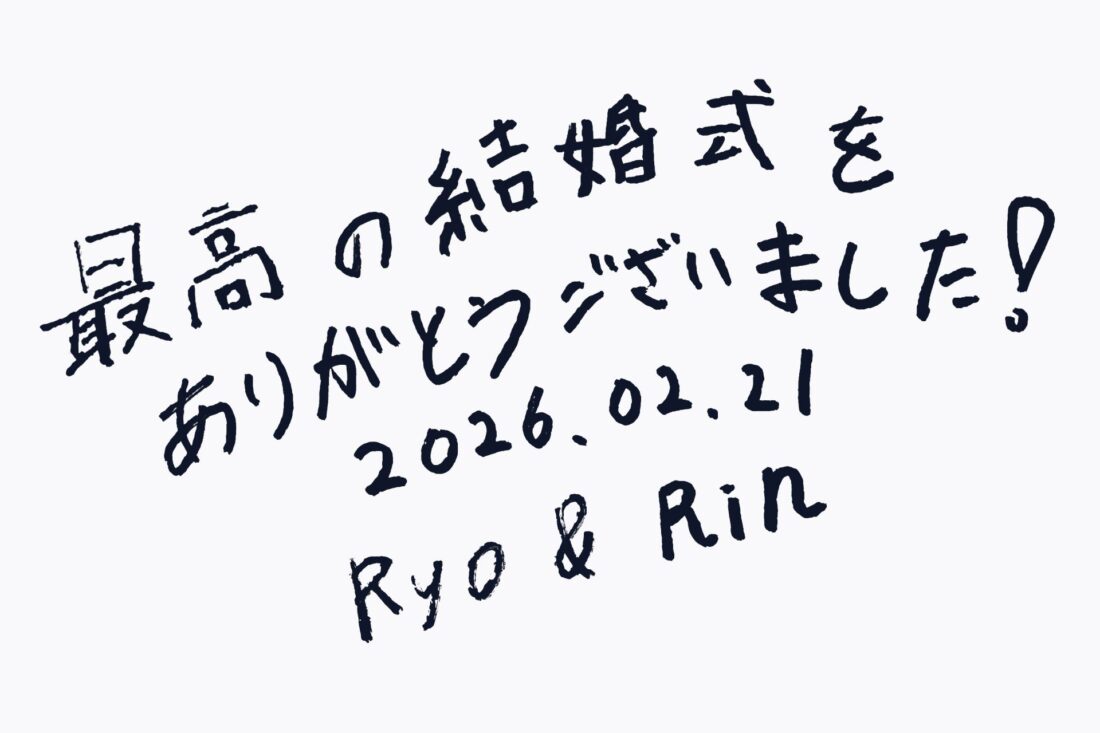 最高の結婚式を
ありがとうございました!
2026.02.21
Ryo & Rin